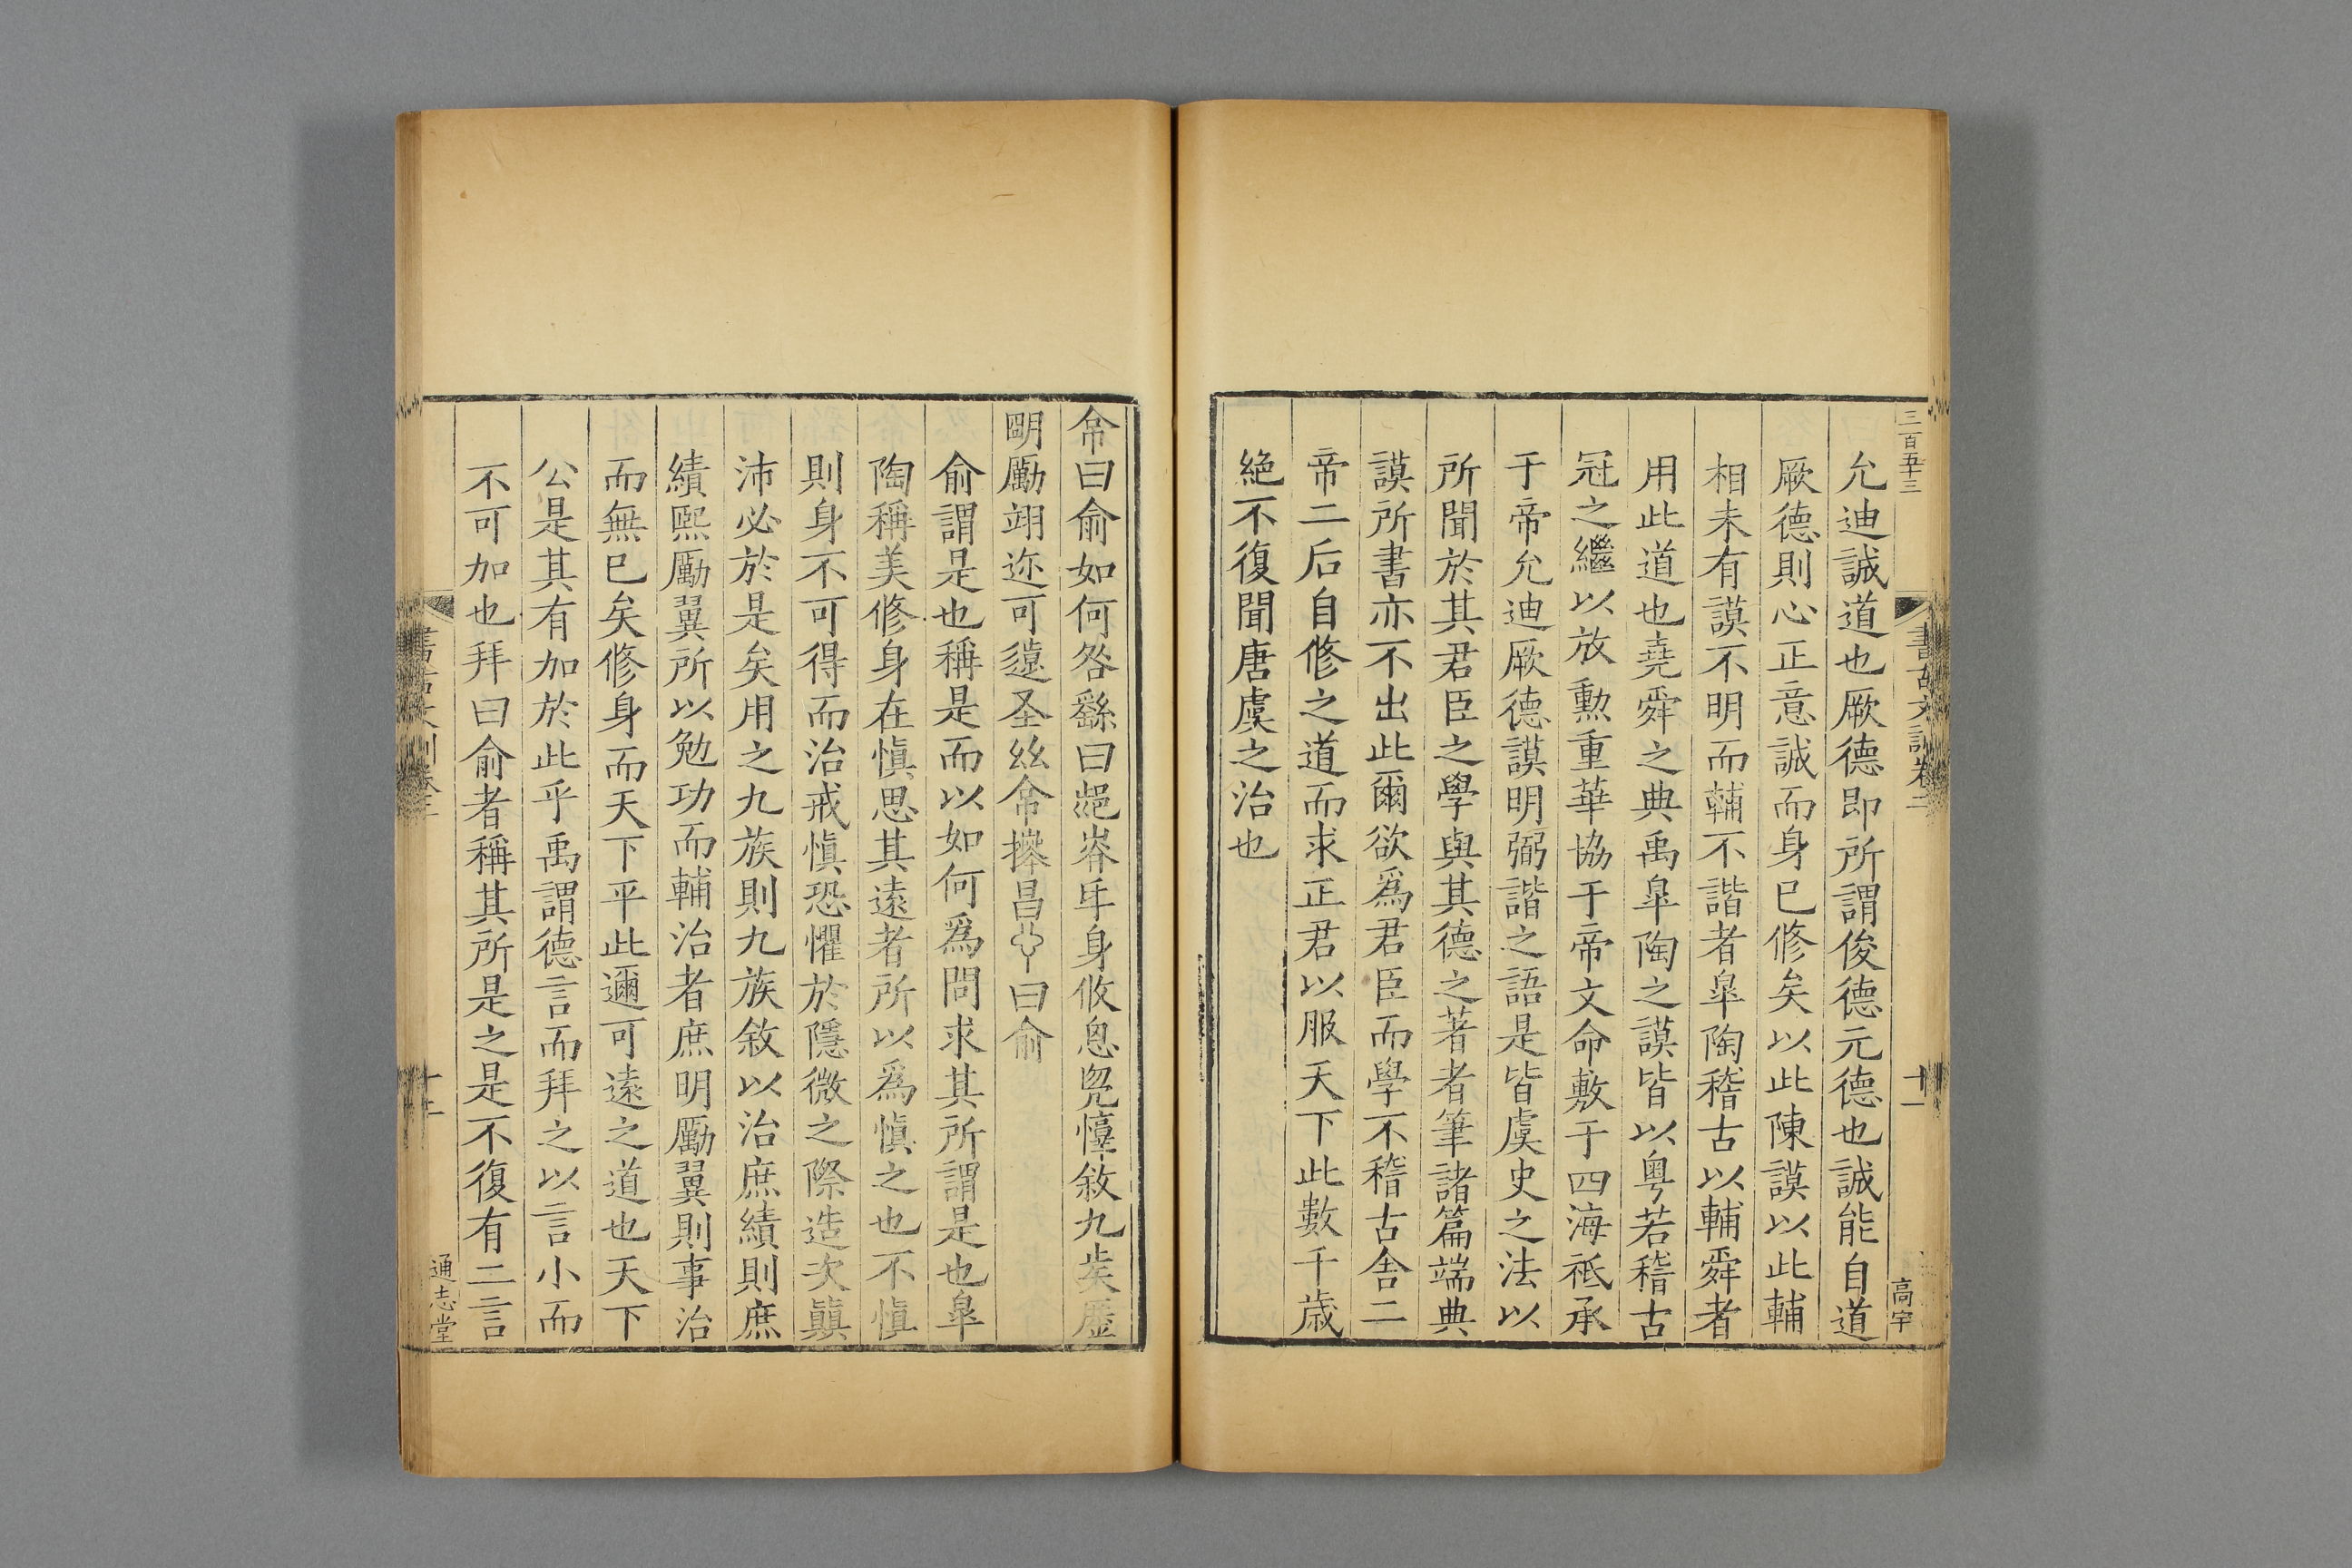 三百五十三
允迪誠道也厥德即所謂俊德元德也誠能自道
厥德則心正意誠而身已修矣以此陳謨以此輔
相未有謨不明而輔不諧者臯陶稽古以輔舜者
用此道也堯舜之典禹臯陶之謨皆以粤若稽古
冠之繼以放勲重華協于帝文命敷于四海祗承
于帝允迪厥德謨明弼諧之語是皆虞史之法以
所聞於其君臣之學與其德之著者筆諸篇端典
謨所書亦不出此爾欲爲君臣而學不稽古舎二
帝二后自修之道而求正君以服天下此數千歲
絶不復聞唐虞之治也
書古文訓卷二
十一
高宇
帝曰俞如何咎繇曰身攸惇敘九
明勵翊迩可遠昌曰俞
俞謂是也稱是而以如何爲問求其所謂是也臯
陶稱美修身在愼思其遠者所以爲愼之也不愼
則身不可得而治戒愼恐懼於隱微之際造次顚
沛必於是矣用之九族則九族敘以治庶績則庶
績熙勵翼所以勉功而輔治者庶明勵翼則事治
而無已矣修身而天下平此邇可遠之道也天下
公是其有加於此乎禹謂德言而拜之以言小而
不可加也拜曰俞者稱其所是之是不復有二言
通志堂